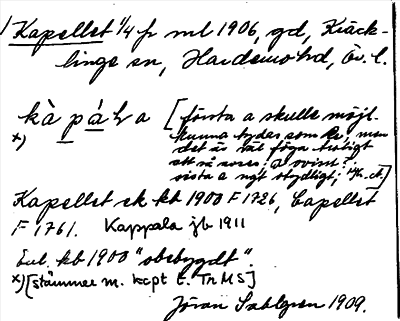 Kapellet 1/4 fr ml 1906, gd, Kräck-
linge sn, Hardemo hd, Ör. l.
kà p á l a [första a skulle möjl.
x) kunna tydas som e, men
det är väl föga troligt
att så vore; l ovisst;
sista a ngt otydligt;
Kapellet ek kb 1900 F 1726, Capellet
F 1761. Kappala jb 1911
Enl. kb 1900 "obebygdt".
x) [stämmer m. kcpt t. Tr MS]
Jöran Sahlgren 1909.